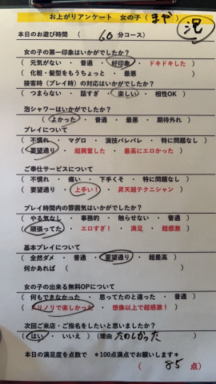 お上がりアンケート 女の子(まや)
本日のお遊び時間 (60分コース)
女の子の第一印象はいかがでしたか?
(元気がない・普通・好印象・ドキドキした
(化粧・髪型をもうちょっと・最悪
接客時(プレイ時)の対応はいかがでしたか?
(つまらない・話すぎ・楽しい・相性OK)
泡シャワーはいかがでしたか?
(よかった・普通・最悪・期待外れ
プレイについて
(不慣れ・マグロ・演技バレバレ・特に問題なし
(要望通り・超興奮した・最高にエロかった)
ご奉仕サービスについて
(不慣れ・痛い・下手くそ・特に問題なし
(要望通り・上手い!・昇天超テクニシャン)
プレイ時間内の雰囲気はいかがでしたか?
(やる気なし・事務的・触らせない・普通
(頑張ってた・エロすぎ!・満足・超感激)
基本プレイについて
(全然ダメ・普通・要望通り・超最高)
何かあれば( )
女の子の出来る無料OPについて
(何もできなかった・思ってたのと違った・普通)
(ノリノリで楽しかった・想像以上で超感激!)
次回ご来店・ご指名をしたいと思いましたか?
(はい・いいえ)(理由 たのしかった
本日の満足度を点数で ★100点満点でお願いします★
(85点)